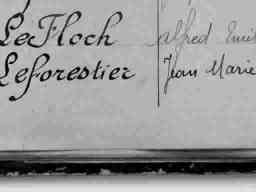 LeFloch alfred Emil
Leforestier Jean Marie